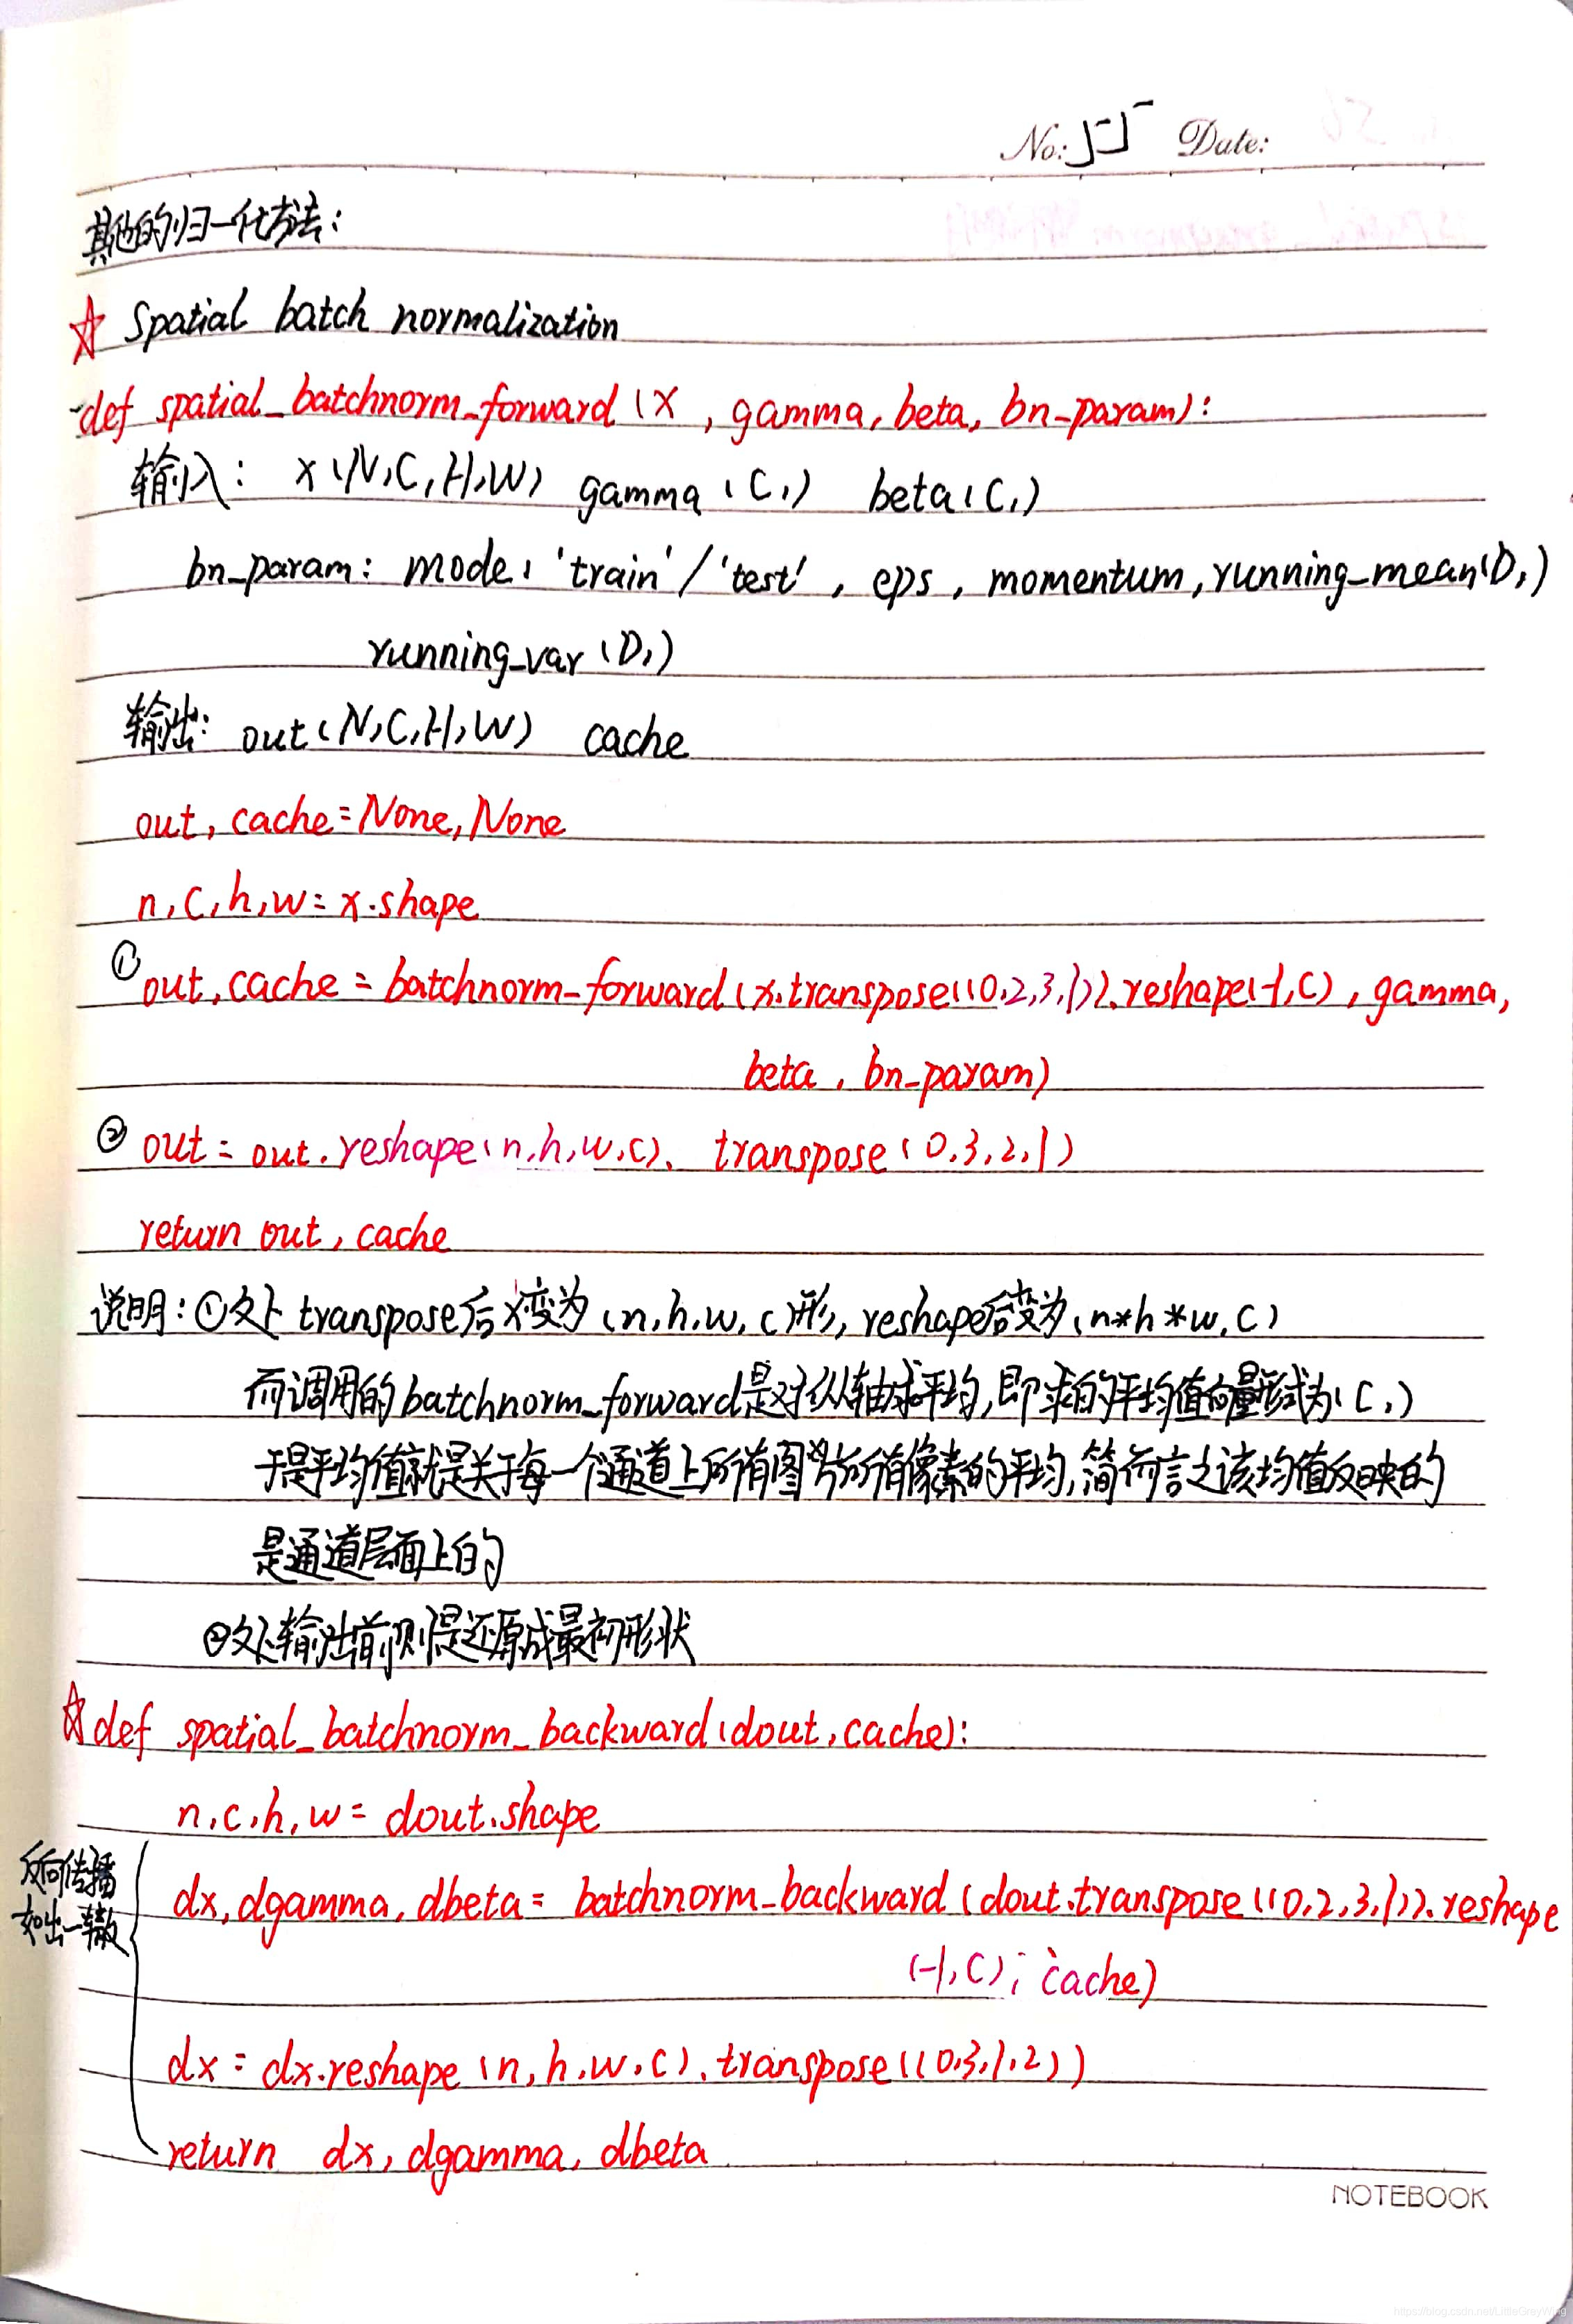 No: 55 Date:
其他的归一化方法:
☆ Spatial batch normalization
def spatial_batchnorm_forward (x, gamma, beta, bn_param):
输入: x (N, C, H, W) gamma (C,) beta (C,)
bn_param: mode: 'train' / 'test', eps, momentum, running_mean (D,)
running_var (D,)
输出: out (N, C, H, W) cache
out, cache = None, None
n, c, h, w = x.shape
① out, cache = batchnorm_forward (x.transpose((0,2,3,1)).reshape(-1,C), gamma,
beta, bn_param)
② out = out.reshape(n,h,w,c). transpose (0,3,2,1)
return out, cache
说明: ①处 transpose后x变为 (n, h, w, c)形, reshape后变为 (n*h*w, C)
而调用的batchnorm_forward是对纵轴求平均, 即求的平均值向量形式为 (C,)
于是平均值就是关于每一个通道上所有图片所有像素的平均, 简而言之该均值反映的
是通道层面上的
②处输出前则是还原成最初形状
☆ def spatial_batchnorm_backward (dout, cache):
n, c, h, w = dout.shape
反向传播
如出一辙
dx, dgamma, dbeta = batchnorm_backward (dout.transpose ((0,2,3,1)).reshape
(-1, C), cache)
dx = dx.reshape (n, h, w, c).transpose((0,3,1,2))
return dx, dgamma, dbeta
NOTEBOOK
https://blog.csdn.net/LittleGreyWing